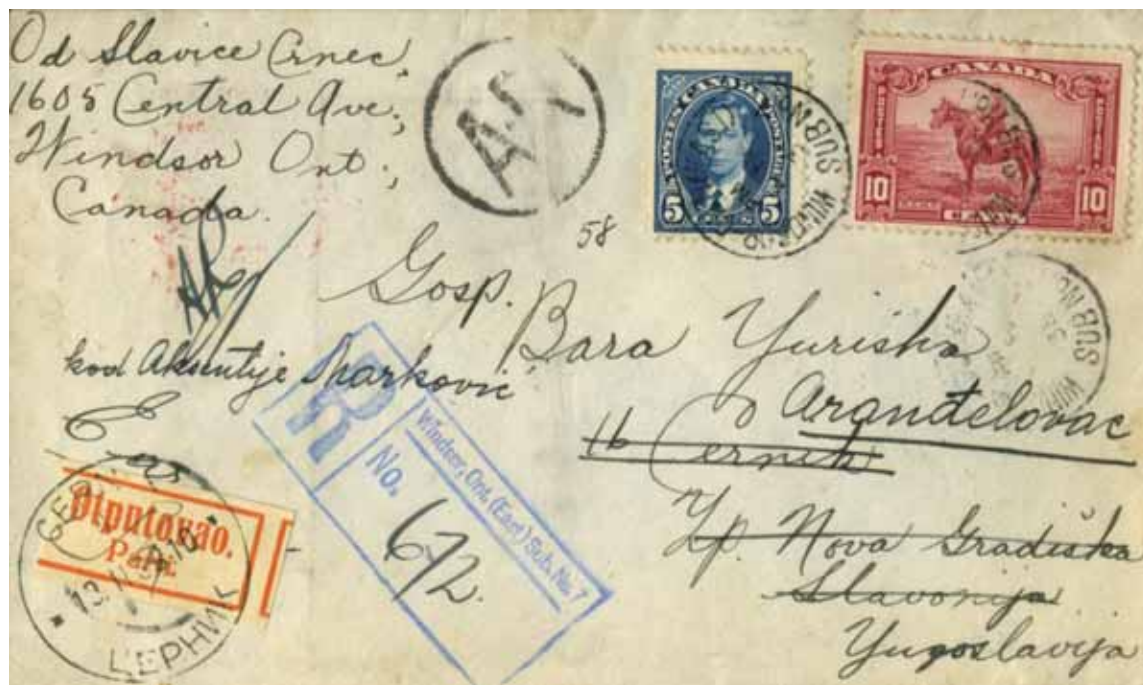 Od Slavice Crnec,
1605 Central Ave.,
Windsor Ont.,
Canada.
AR
POSTES CANADA POSTAGE
5 CENTS 5
CANADA
10 CENTS 10
SUB NO
58
AR
Gosp.
Bara Yurisha
kod Aksentije Marković
Aranđelovac
16 Cernik
Zp. Nova Gradiška
Slavonija
Yugoslavija
R
Windsor, Ont. (East) Sub. No. 7
No. 672.
Otputovao.
Parti
ЦЕРНИК
SUB NO